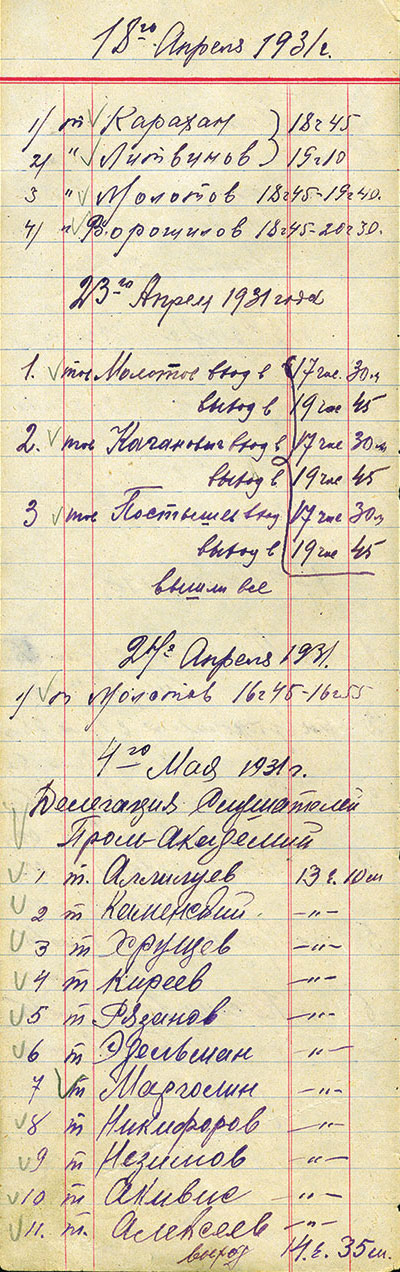 18го Апреля 1931г.
1) т Карахан } 18ч45
2) " Литвинов } 19ч10
3 " Молотов 18ч45-19ч40.
4) " Ворошилов 18ч45-20ч30.
23го Апреля 1931 года
1. тов Молотов вход в 17 час 30м
выход в 19 час 45
2. тов Каганович вход в 17 час 30м
выход в 19 час 45
3 тов Постышев вход 17 час 30м
выход в 19 час 45
вышли все
Апреля 1931.
1) т Молотов 16ч45-16ч55
4го Мая 1931г.
Делегация Слушателей
Пром-Академии
1 т. Аллилуев 13 ч. 10м
2 т Каменский. -"-
3 т Хрущев -"-
4 т Киреев -"-
5 т Рязанов -"-
6 т Эдельман -"-
7 т Марголин -"-
8 т Никифоров -"-
9 т Незимов -"-
10 т Акивис -"-
11. т. Алексеев -"-
выход 14.ч. 35м.